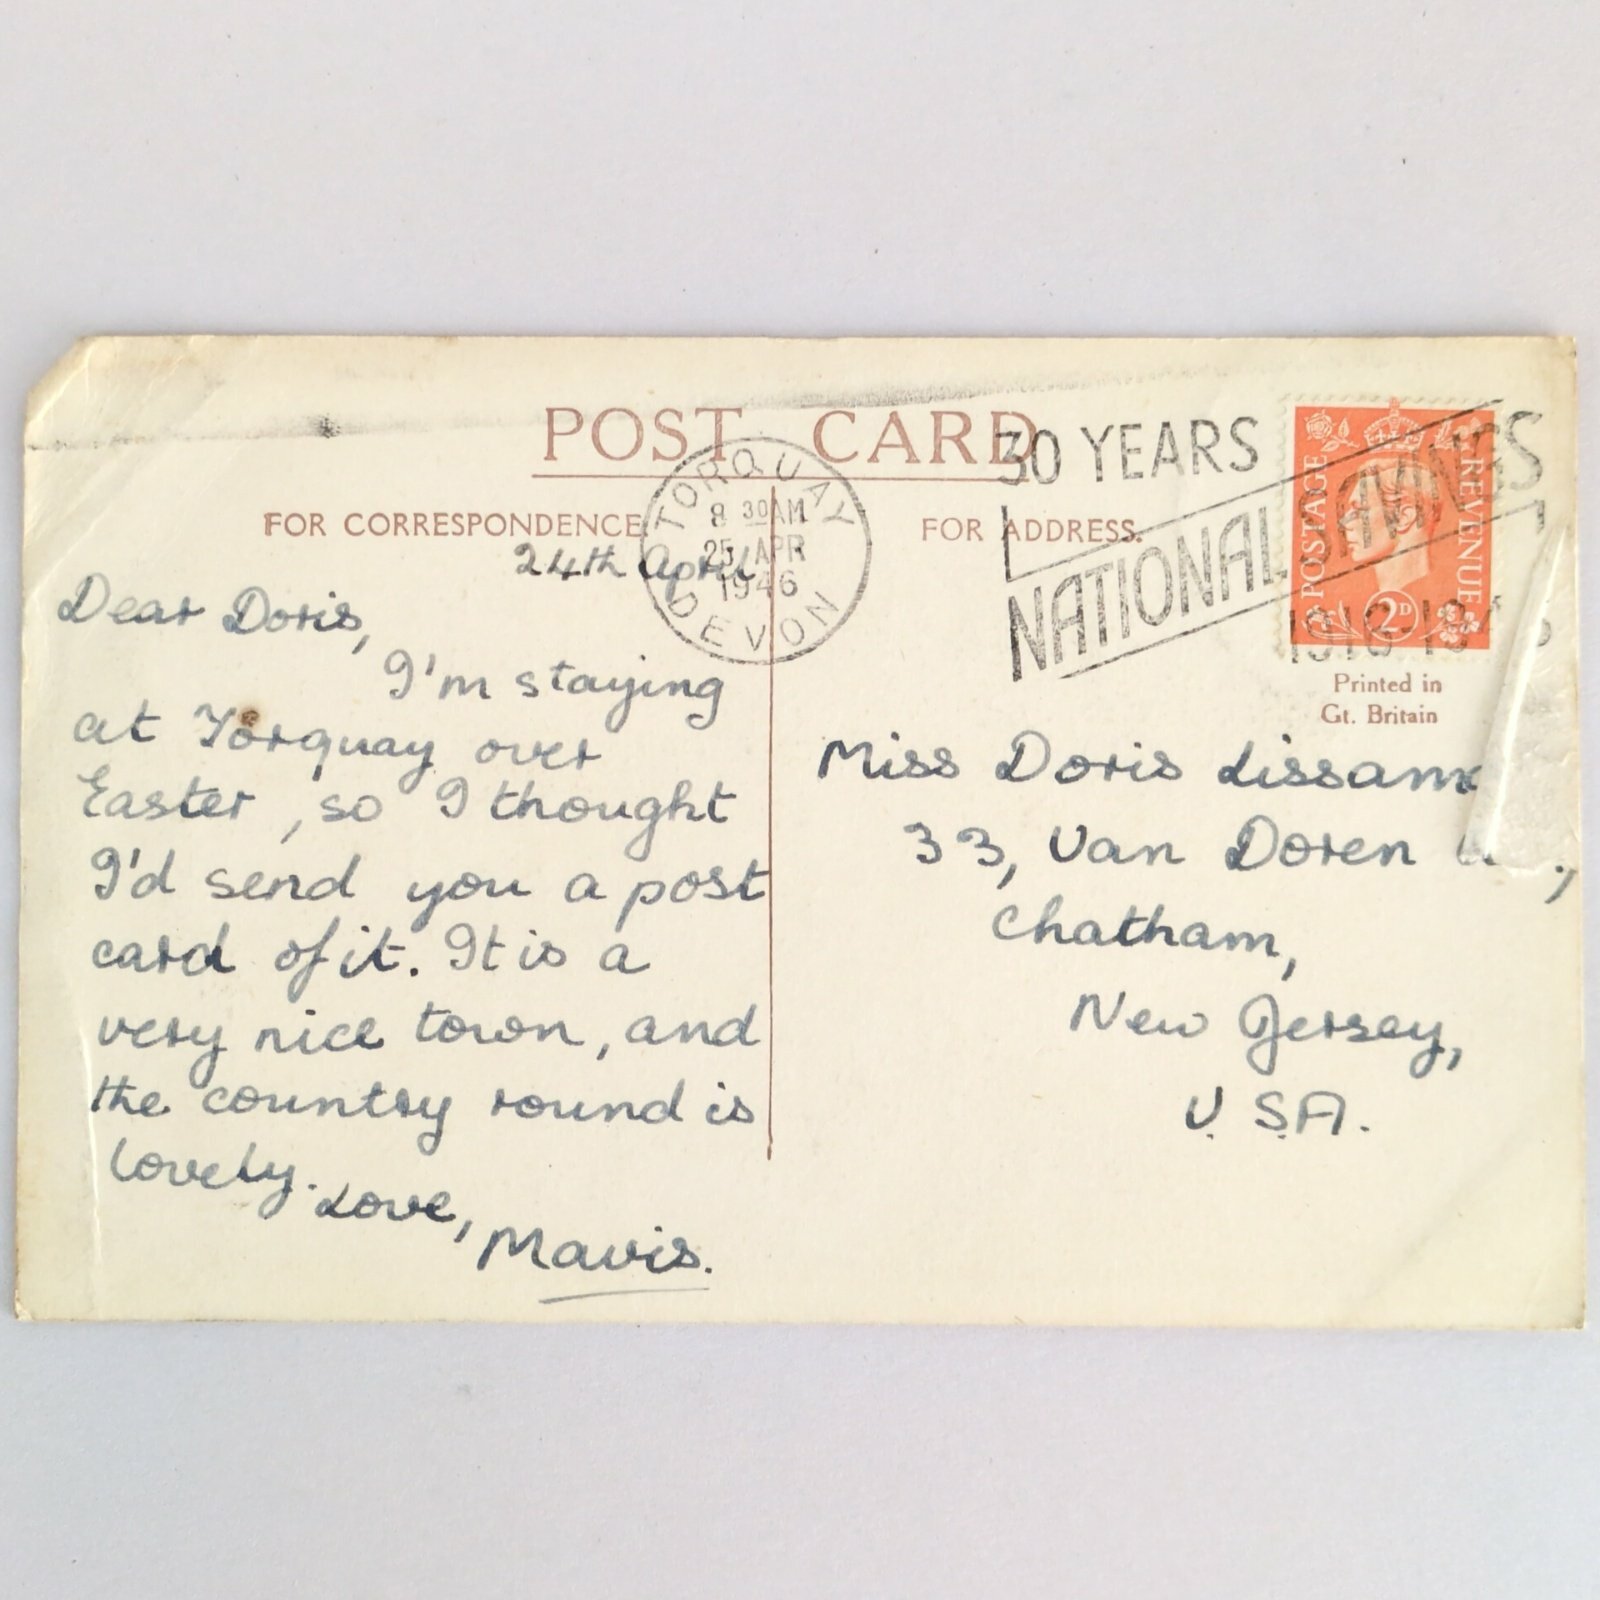 POST CARD
FOR CORRESPONDENCE
FOR ADDRESS.
TORQUAY
8 30AM
25 APR
1946
DEVON
30 YEARS
NATIONAL SAVINGS
1916-19
POSTAGE
REVENUE
2D
Printed in
Gt. Britain
24th April
Dear Doris,
I'm staying
at Torquay over
Easter, so I thought
I'd send you a post
card of it. It is a
very nice town, and
the country round is
lovely.
Love,
Mavis.
Miss Doris
33, Van Doren
Chatham,
New Jersey,
U.S.A.